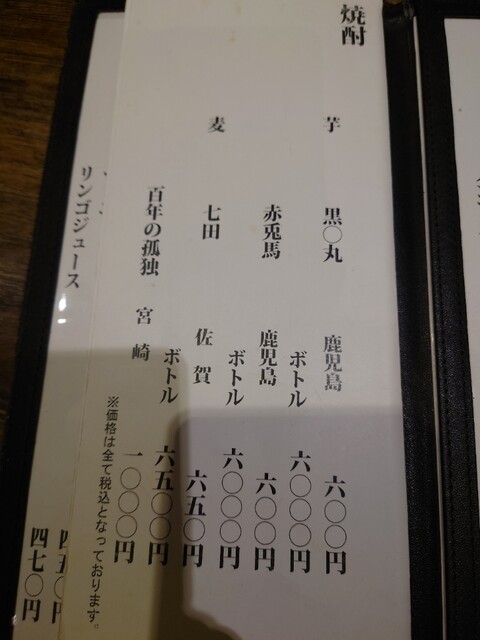 焼酎
芋 黒〇丸 鹿児島 六〇〇円
ボトル 六〇〇〇円
赤兎馬 鹿児島 六〇〇円
ボトル 六〇〇〇円
麦 七田 佐賀 六五〇円
ボトル 六五〇〇円
百年の孤独 宮崎 一〇〇〇円
※価格は全て税込となっております。
四五〇円
リンゴジュース 四七〇円